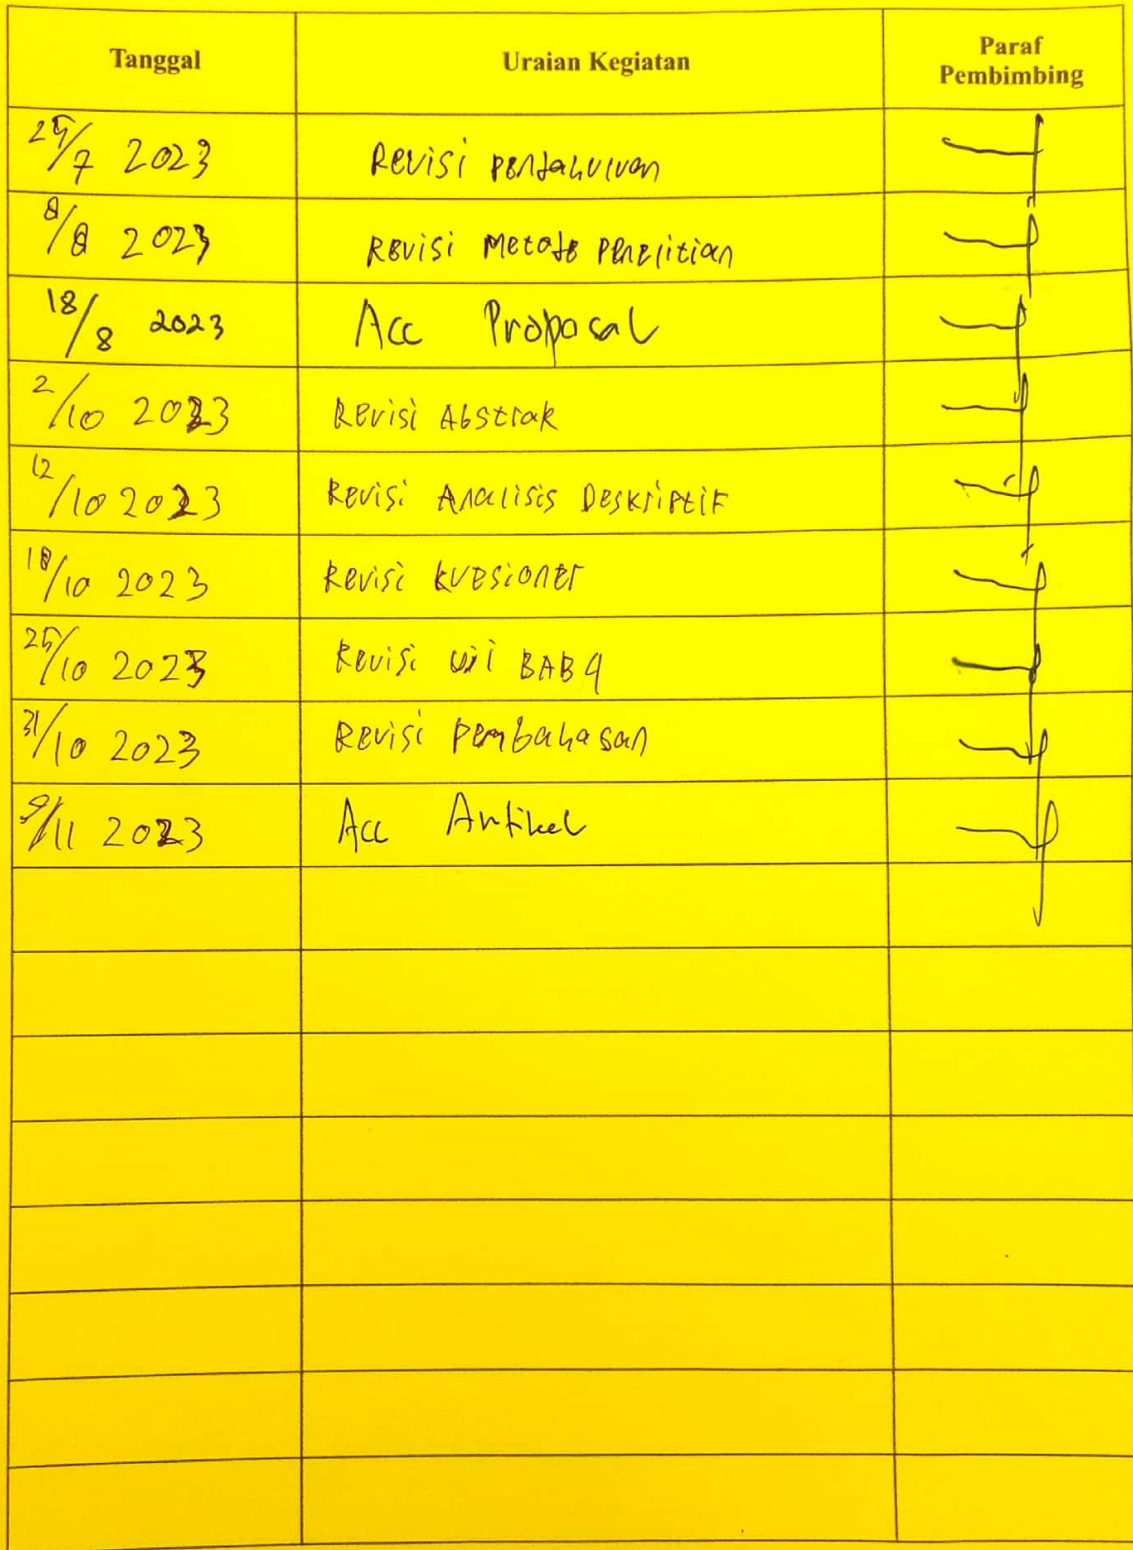 Tanggal Uraian Kegiatan Paraf Pembimbing
25/7 2023 Revisi Pendahuluan
8/8 2023 Revisi Metode Penelitian
18/8 2023 Acc Proposal
2/10 2023 Revisi Abstrak
12/10 2023 Revisi Analisis Deskriptif
18/10 2023 Revisi kuesioner
25/10 2023 Revisi uji BAB 4
31/10 2023 Revisi pembahasan
9/11 2023 Acc Artikel